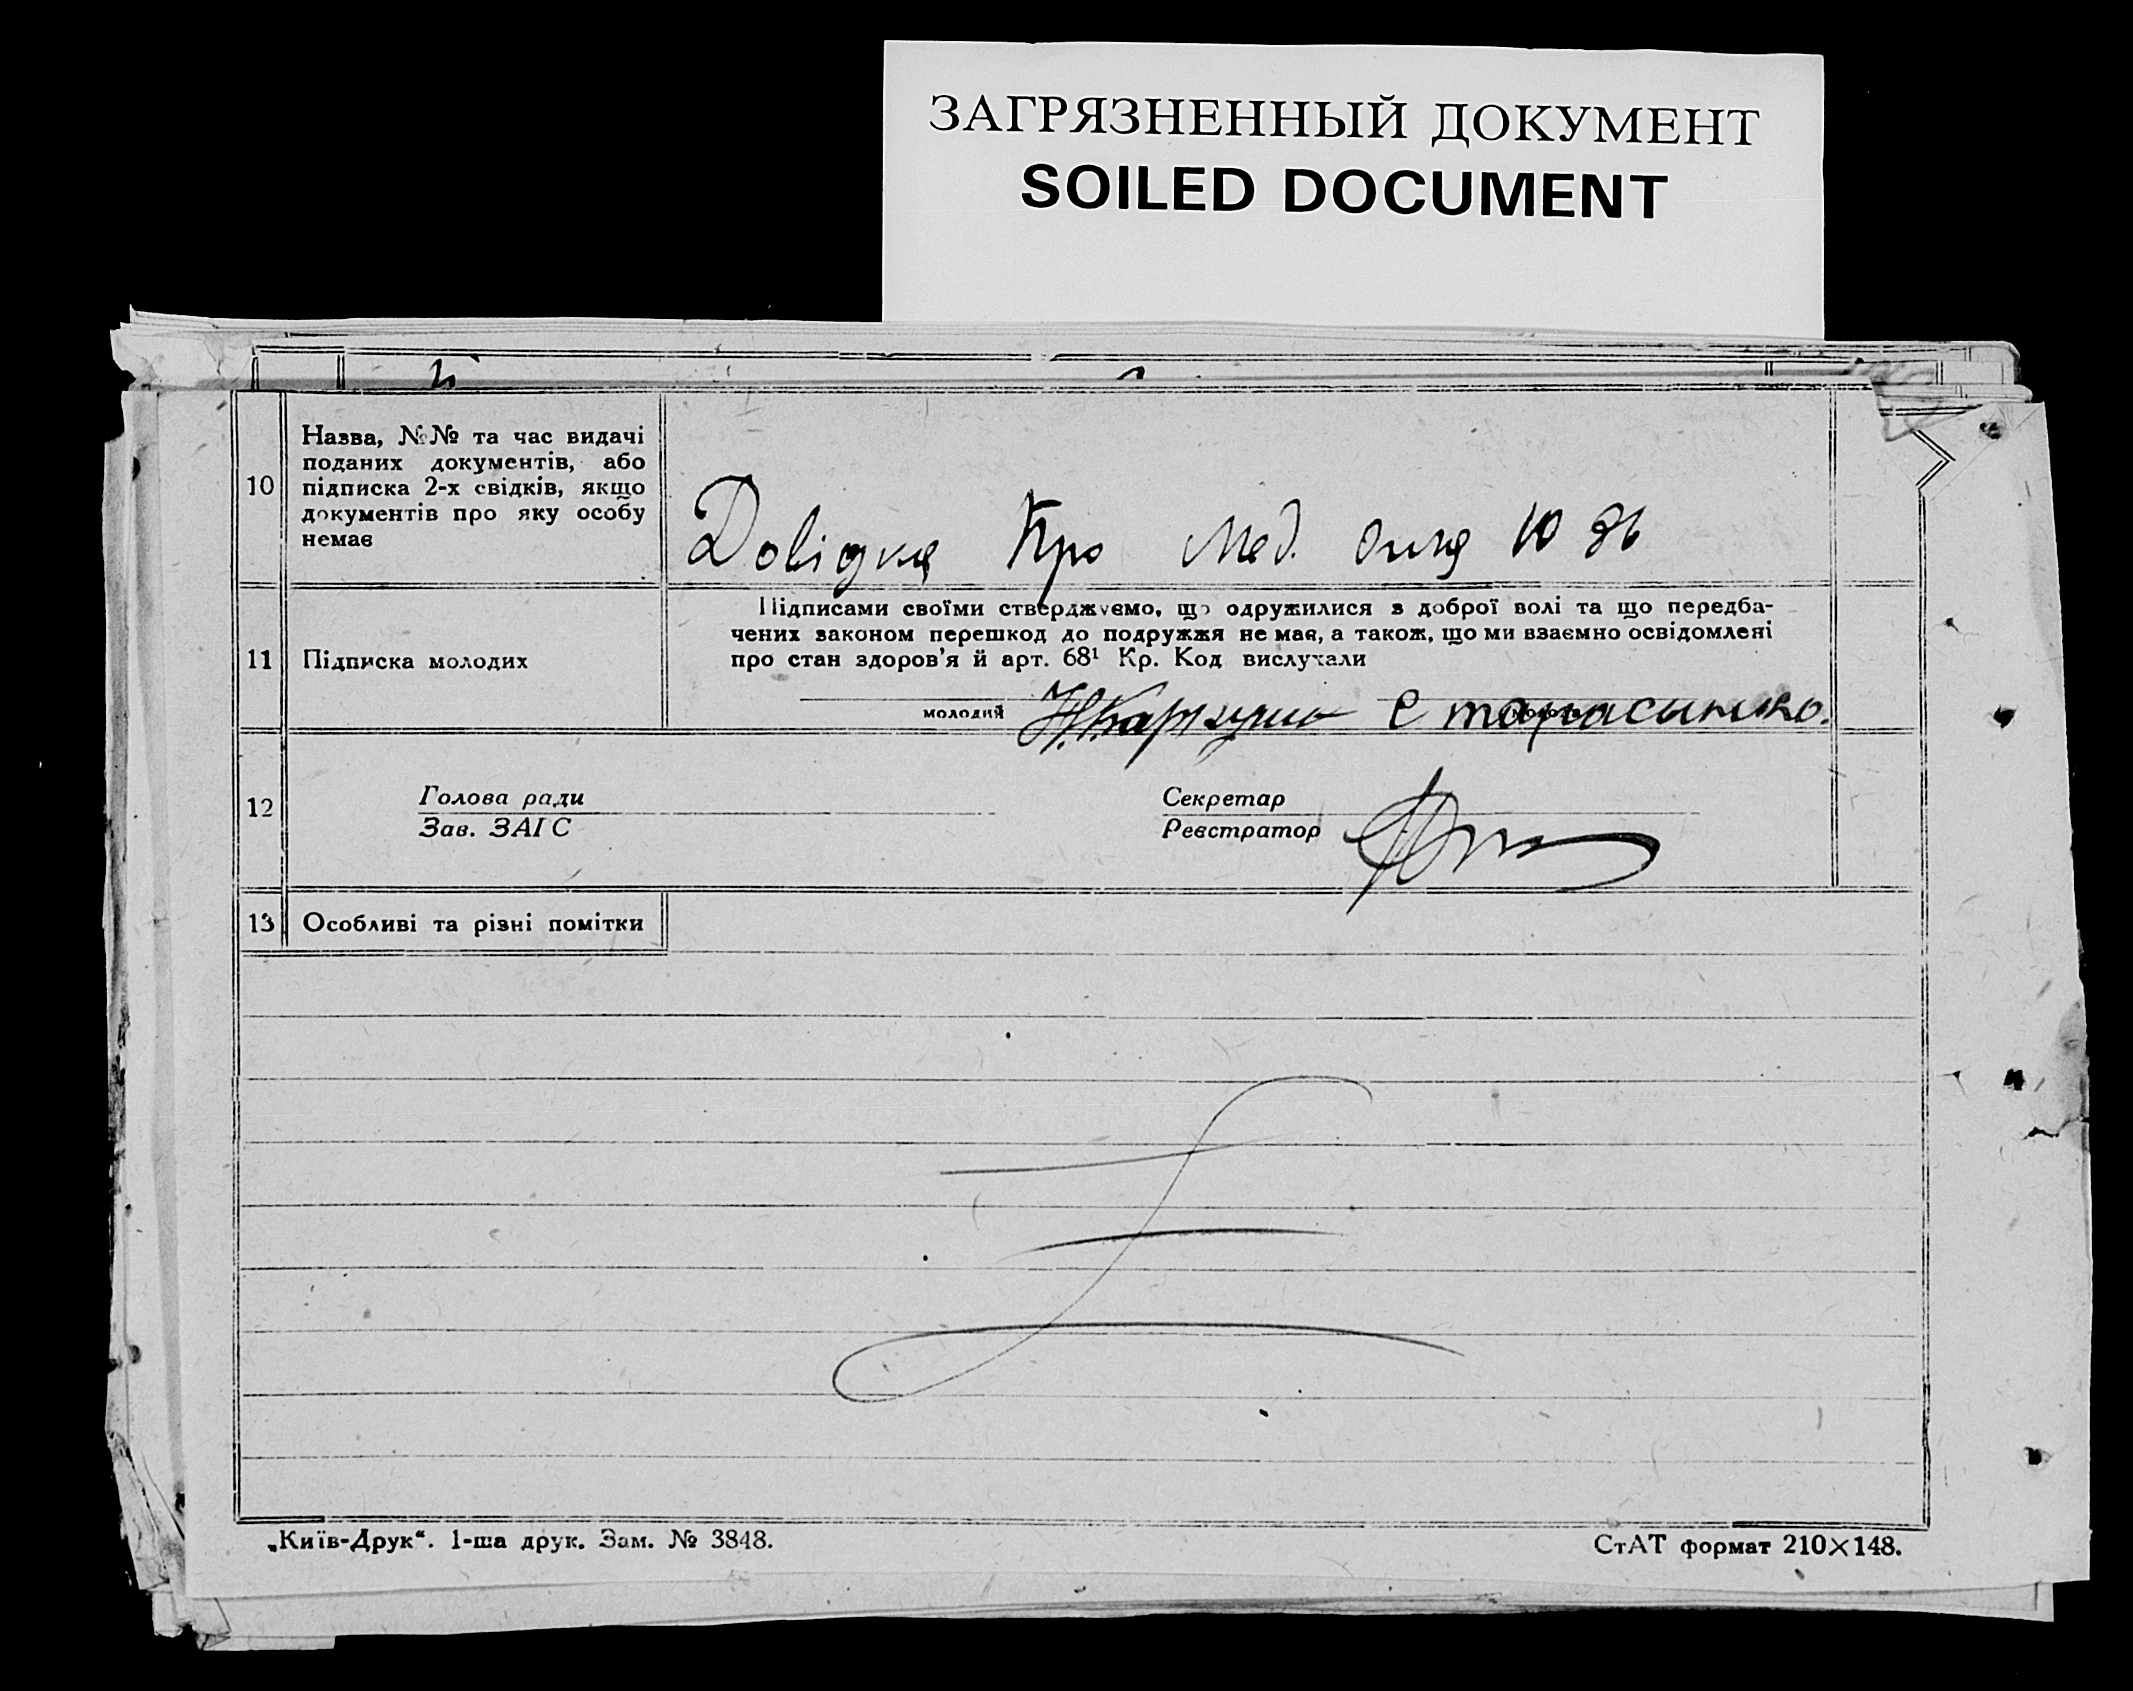 ЗАГРЯЗНЕННЫЙ ДОКУМЕНТ
SOILED DOCUMENT
10
Назва, №№ та час видачі
поданих документів, або
підписка 2-х свідків, якщо
документів про яку особу
немає
Довідка Про Мед. Огля
Підписами своїми стверджуємо, що одружилися з доброї волі та що передба-
чених законом перешкод до подружжя не має, а також, що ми взаємно освідомлені
про стан здоров'я й арт. 68¹ Кр. Код вислухали
11 Підписка молодих
молодий
12
Голова ради
Зав. ЗАГС
Секретар
Реєстратор
13 Особливі та різні помітки
„Київ-Друк“. 1-ша друк. Зам. № 3848.
СтАТ формат 210×148.